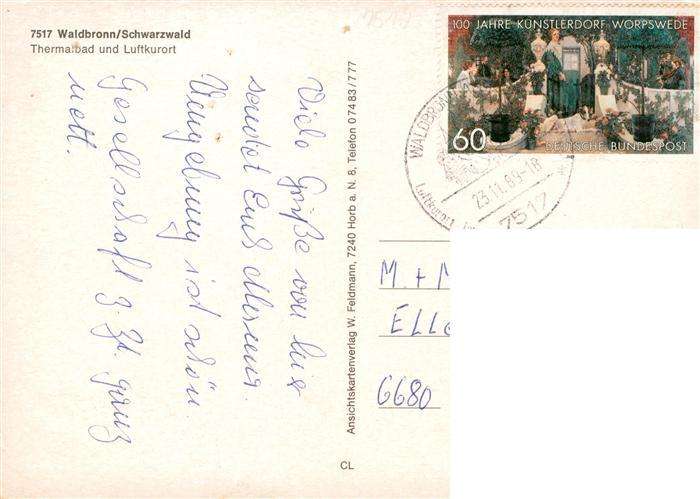 7517 Waldbronn/Schwarzwald
Thermalbad und Luftkurort
Viele Grüße von hier
sendet Euch
Umgebung ist schön
Gesellschaft z. Zt. ganz
nett.
Ansichtskartenverlag W. Feldmann, 7240 Horb a. N. 8, Telefon 0 74 83 / 7 77
CL
100 JAHRE KÜNSTLERDORF WORPSWEDE
60
DEUTSCHE BUNDESPOST
Luftkurort
23.11.89-18
7517
M. + M
ELL
6680